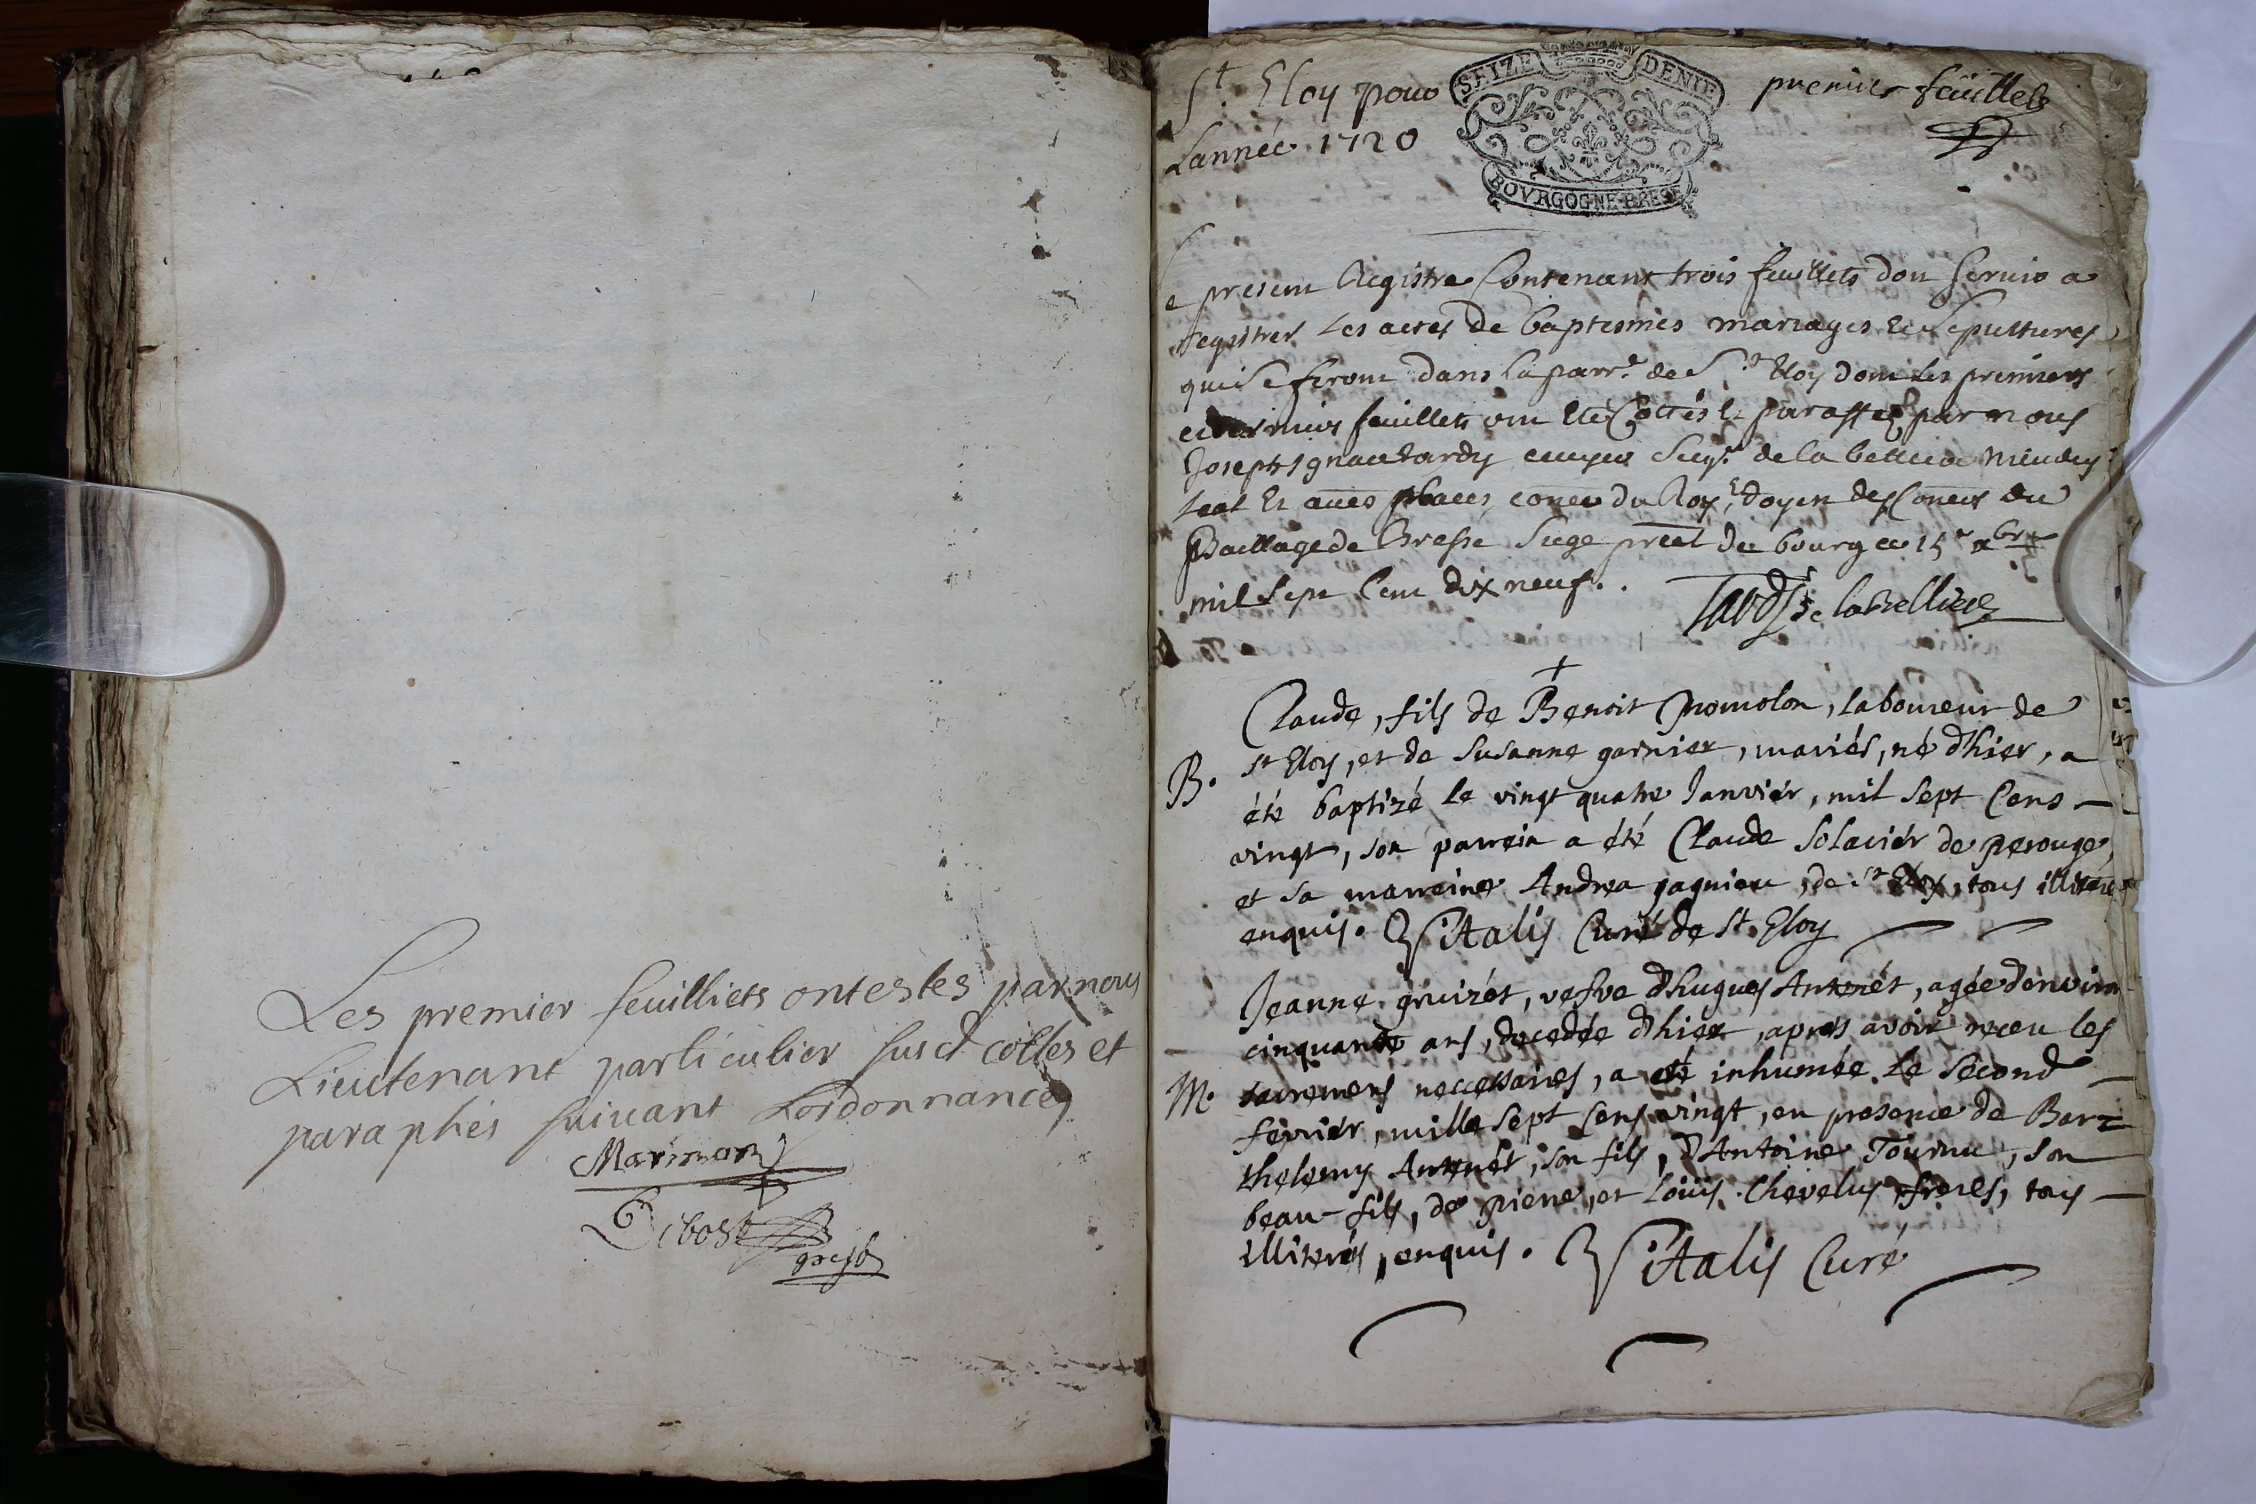 Les premier feuilliets ont estes par nous
Lieutenant particulier susd cottes et
paraphés suivant Lordonnance
Marinon
Debost
greff
St. Eloy pour
Lannée 1720
SEIZE DENIE
BOVRGOGNE BRESE
premier feüillet
Le present Registre Contenant trois feuillets dou servir a
registrer Les actes de baptesmes mariages et sepultures
qui se feront dans la parr.e de St Eloy dont les premiers
et derniers feuillets ont ete Cottés et paraffez par nous
Joseph Ignace tardy ecuyer Seigr de la belliere
et aues places, coner du Roy, doyen des Coners au
Baillage de Bresse Siege preal de bourg ce 15e xbre
mil sept Cent dix neuf.
Tardy de la Belliere
B.
Claude, fils de Benoit pomolon, laboureur de
st Eloy, et de Susanne garnier, mariés, né d'hier, a
été baptizé le vingt quatre Janvier, mil sept Cens
vingt, son parrein a été Claude Solaviér de perouge,
et sa marreine Andrea gagnieu, de st Eloy, tous illiterés
enquis. Vitalis Curé de St. Eloy
M.
Jeanne gruizét, vefve d'hugues Antonét, agée d'environ
cinquante ans, decedée d'hier, apres avoir receu les
sacremens neccessaires, a eté inhumée le second
février, mille sept Cens vingt, en presence de Bar-
thelemy Antonét, son fils, d'Antoine Tournu, son
beau-fils, de piere, et Loüis Chevelus, freres, tous
illiterés, enquis. Vitalis Curé